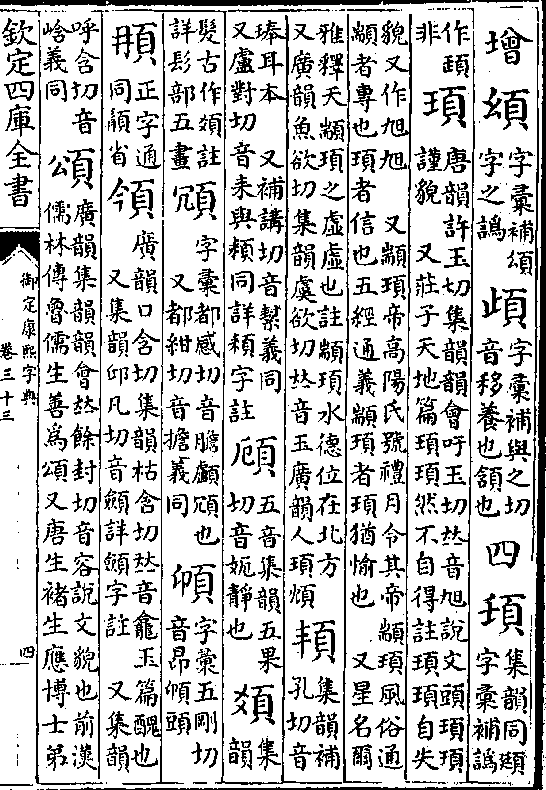 增 𩑰 字彙補頌字之譌 𩑱 字彙補與之切音移養也頷也 四 𩑶 集韻同頲字彙補譌
作𩑒非 頊 唐韻許玉切集韻韻會吁玉切𠀤音旭說文頭頊頊謹貌 又莊子天地篇頊頊然不自得註頊頊自失
貌又作旭旭 又顓頊帝高陽氏號禮月令其帝顓頊風俗通顓者專也頊者信也五經通義顓頊者頊猶愉也 又星名爾
雅釋天顓頊之虛虛也註顓頊水德位在北方 又廣韻魚欲切集韻虞欲切𠀤音玉廣韻人頊頊 集韻補孔切音
琫耳本 又補講切音㨍義同 又盧對切音耒與纇同詳纇字註 五音集韻五果切音婐靜也 頦 集韻
髮古作頦註詳髟部五畫 字彙都感切音膽顱頄也 又都紺切音擔義同 字彙五剛切音昂頭
正字通同顢省 頜 廣韻口含切集韻枯含切𠀤音龕玉篇醜也 又集韻邱凡切音頗詳頗字註 又集韻
呼含切音㟏義同 頌 廣韻集韻韻會𠀤餘封切音容說文貌也前漢儒林傳魯儒生善爲頌又唐生褚生應博士弟
欽定四庫全書
御定康熙字典
卷三十三
四